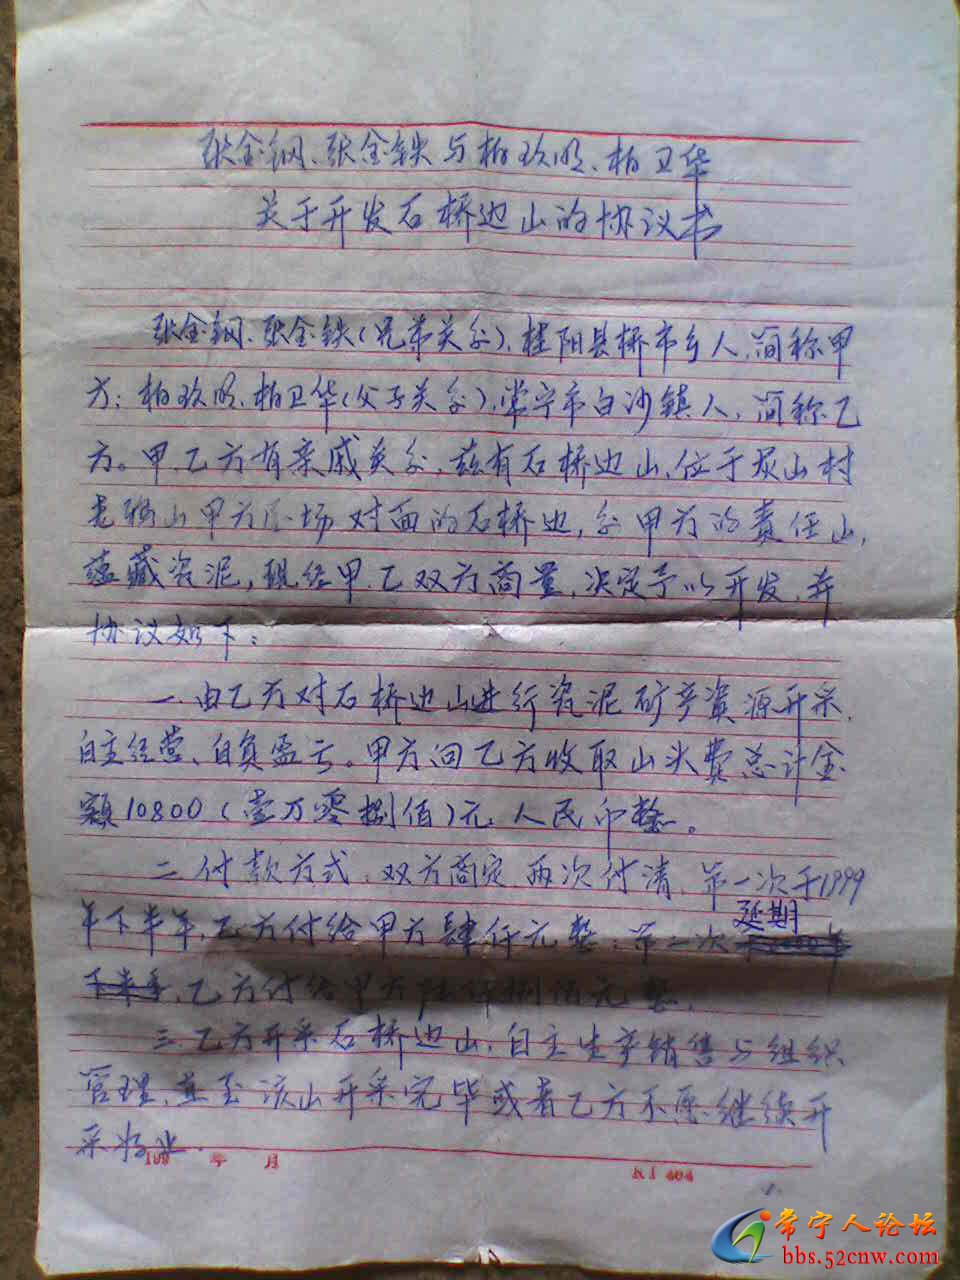 张金钢、张金铁与柏玖明、柏卫华
关于开发石桥边山的协议书
张金钢、张金铁(兄弟关系),桂阳县桥市乡人,简称甲
方;柏玖明、柏卫华(父子关系),常宁市白沙镇人,简称乙
方。甲、乙方有亲戚关系,兹有石桥边山,位于炭山村
老 山甲方 场对面的石桥边,系甲方的责任山,
蕴藏瓷泥,现经甲、乙双方商量,决定予以开发,并
协议如下:
一、由乙方对石桥边山进行瓷泥矿产资源开采,
自主经营、自负盈亏。甲方向乙方收取山头费总计金
额10800(壹万零捌佰)元,人民币整。
二、付款方式,双方商定,两次付清,第一次于1999
年下半年,乙方付给甲方肆仟元整;第二次延期
,乙方付给甲方陆仟捌佰元整。
三、乙方开采石桥边山,自主生产销售与组织
管理,直至该山开采完毕或者乙方不愿继续开
采为止。
199 年 月
KJ 404
1.
常宁人论坛
bbs.52cnw.com